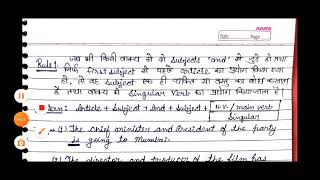 Date
Page
Rule 1: जब भी किसी वाक्य में दो subjects 'and' से जुड़े हो तथा
सिर्फ first subject से पहले article का प्रयोग किया गया
हो, तो वह subject एक ही व्यक्ति या वस्तु का बोध कराता
है तथा वाक्य में Singular Verb का प्रयोग किया जाता है।
Article + Subject + And + Subject + H.V. / main verb
Singular
(1) The chief minister and President of the party
is going to Mumbai.
The director and producer of the film has